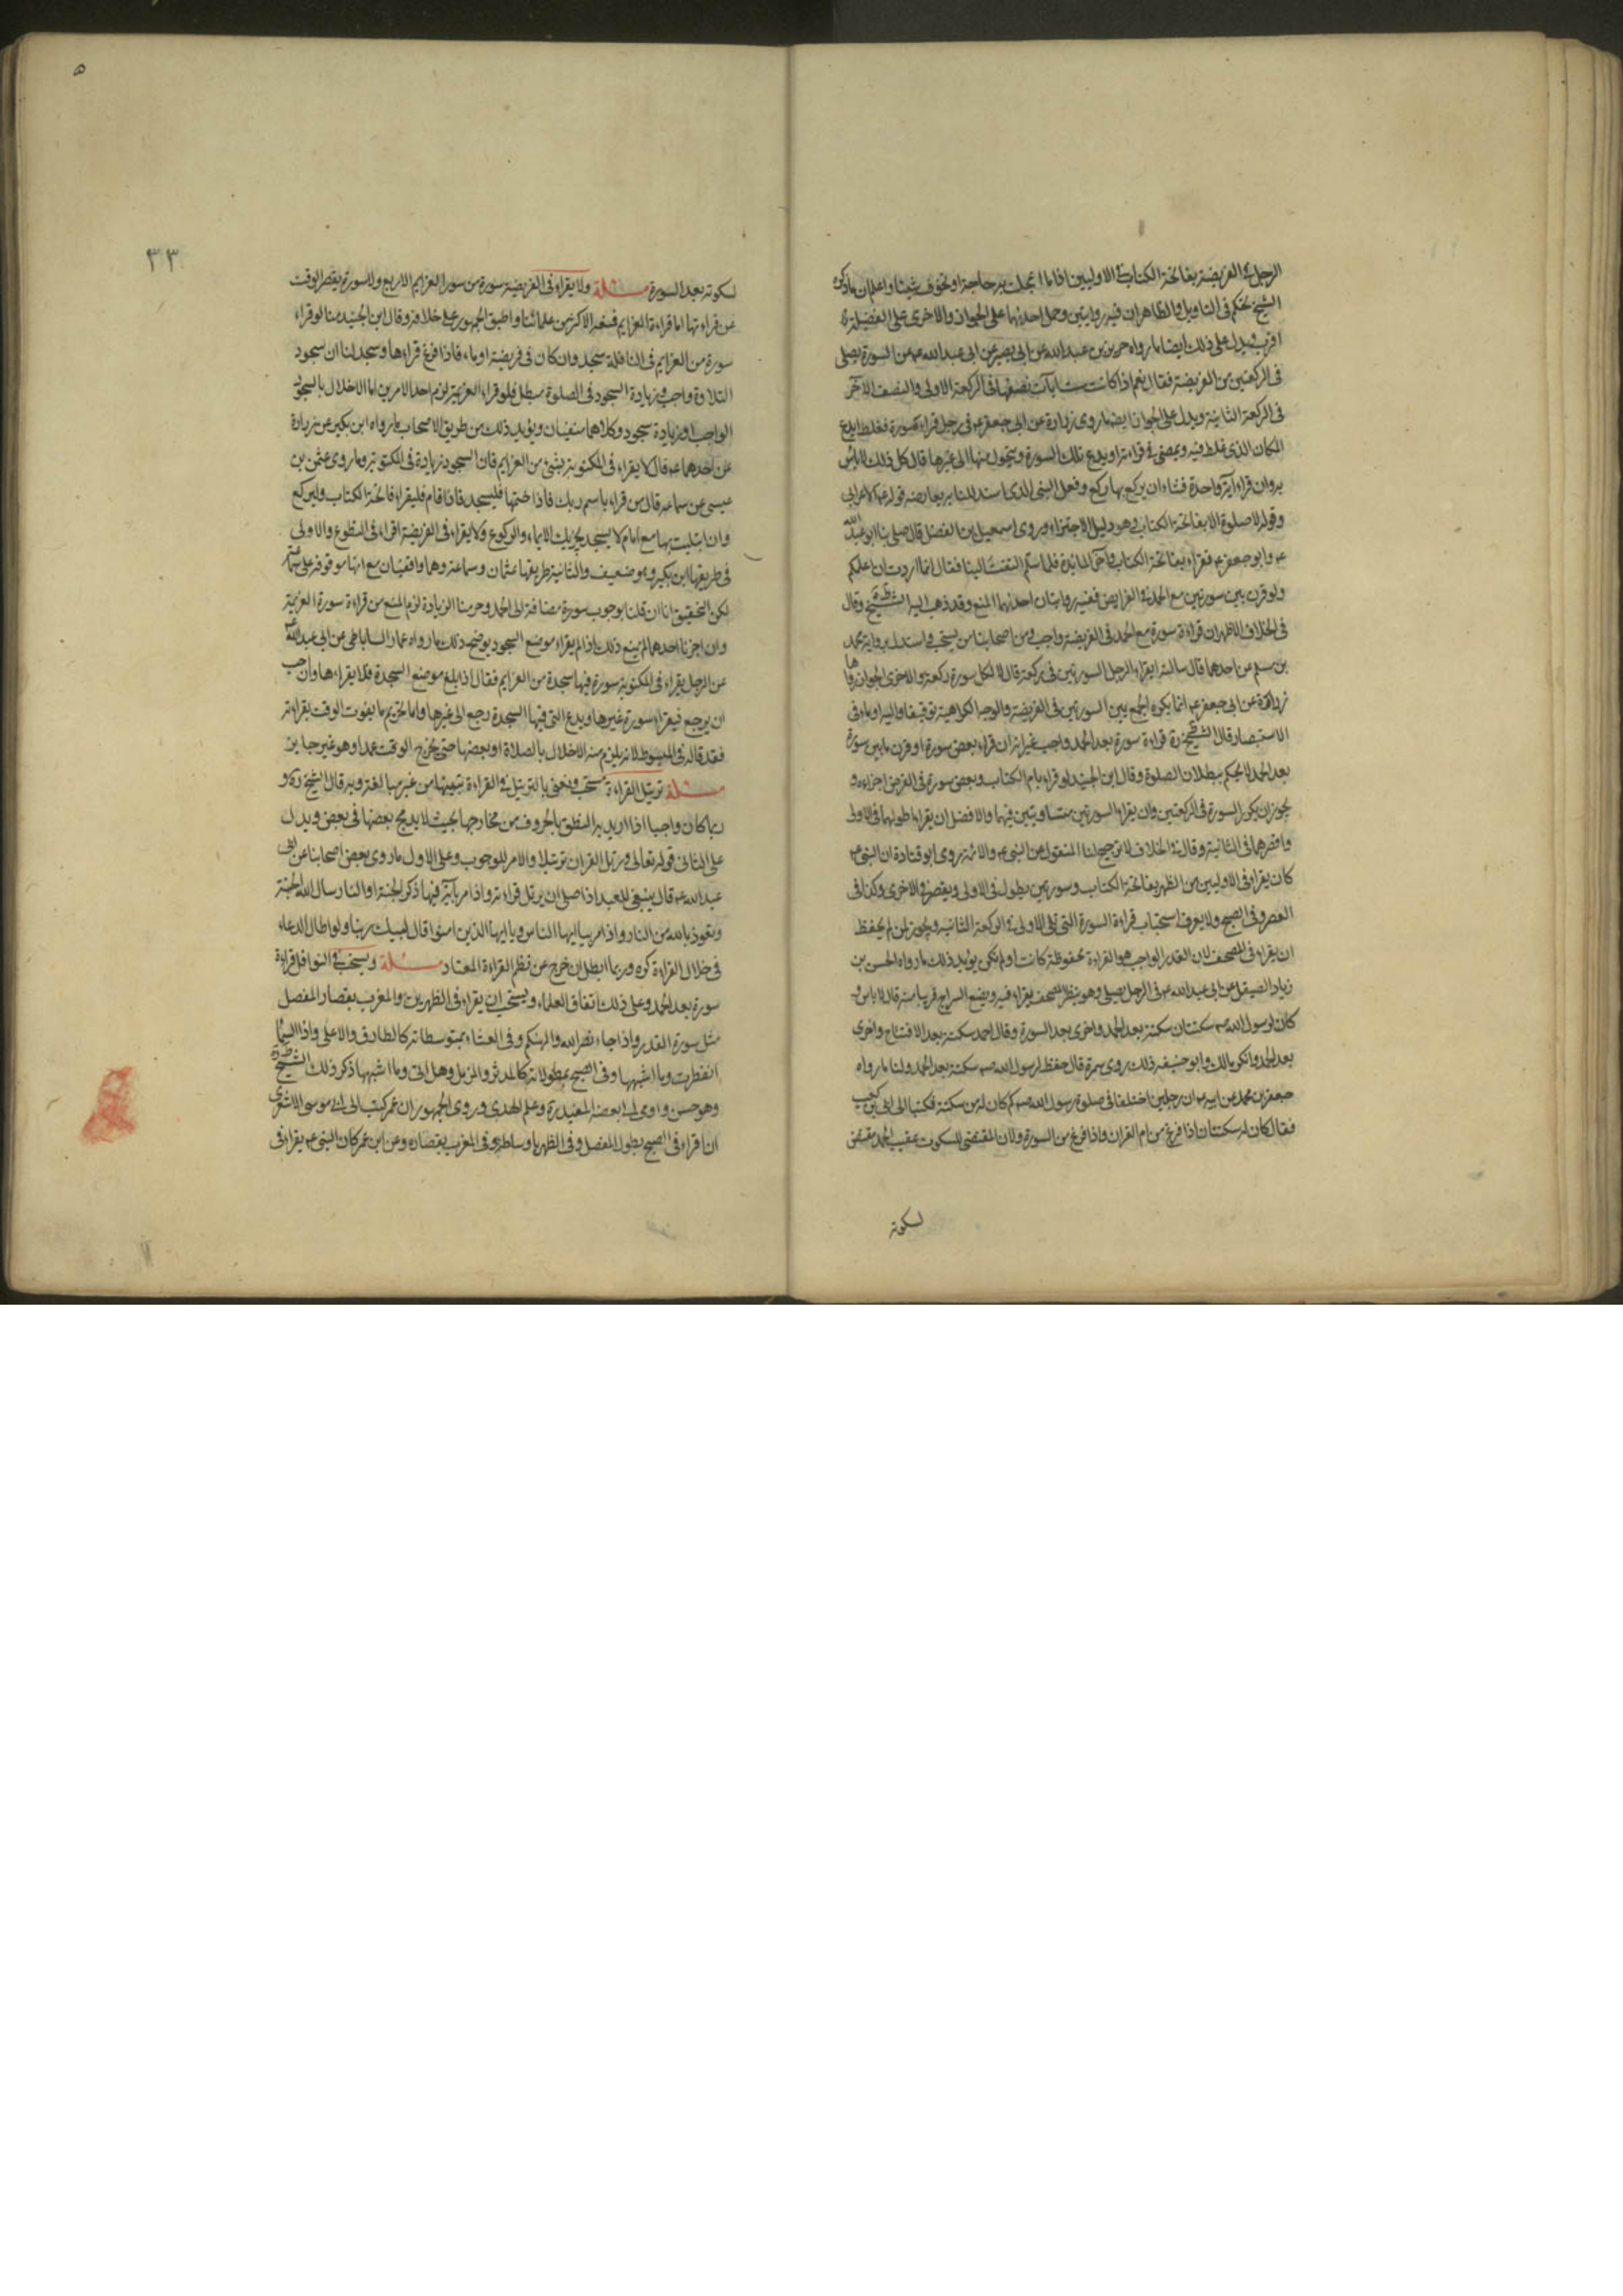 الرجل في الفريضة بفاتحة الكتاب في الاوليين اذا ما اعجلت به حاجة او تخوف شيئا واعلم ان ما ذكره
الشيخ تحكم في التاويل والظاهر ان فيه روايتين وحمل احديهما على الجواز والاخرى على الفضيلة
اقرب ويدل على ذلك ايضا ما رواه حريز بن عبد الله عن ابي بصير عن ابي عبد الله ع عن السورة يصلي
في الركعتين من الفريضة فقال نعم اذا كانت ست ايات نصفها في الركعة الاولى والنصف الاخر
في الركعة الثانية ويدل على الجواز ايضا ما روى زرارة عن ابي جعفر ع في رجل قراء سورة فغلط ايدع
المكان الذي غلط فيه ويمضي في قراءته او يدع تلك السورة ويتحول منها الى غيرها قال كل ذلك لا باس
به وان قراء اية واحدة فشاء ان يركع بها ركع وفعل النبي الذي استدللنا به يعارضه قوله ع للاعرابي
وقوله لا صلوة الا بفاتحة الكتاب وهو دليل الاجتزاء وروى اسمعيل بن الفضل قال صلى بنا ابو عبد الله
ع وابو جعفر ع فقراء بفاتحة الكتاب واخر المائدة فلما سلم التفت الينا فقال انما اردت ان اعلمكم
ولو قرن بين سورتين مع الحمد في الفرايض ففيه روايتان احديهما المنع وقد ذهب اليه الشيخ وقال
في الخلاف الاظهر ان قراءة سورة مع الحمد في الفريضة واجب ومن اصحابنا من يستحب واستدل برواية محمد
بن مسلم عن احدهما قال سالته ايقراء الرجل السورتين في ركعة قال لا لكل سورة ركعة والاخرى الجواز رواها
زرارة عن ابي جعفر ع انما يكره الجمع بين السورتين في الفريضة والوجه الكراهية توفيقا واليه اوماء في
الاستبصار قال الشيخ ره قراءة سورة بعد الحمد واجب غير انه ان قراء بعض سورة او قرن ما بين سورة
بعد الحمد لا يحكم ببطلان الصلوة وقال ابن الجنيد لو قراء بام الكتاب وبعض سورة في الفرض اجزاءه و
يجوز ان يكرر السورة في الركعتين وان يقراء السورتين متساويتين فيهما والافضل ان يقراء اطولهما في الاولى
واقصرهما في الثانية وقال في الخلاف لا ترجيح لنا المنقول عن النبي ع والائمة روى ابو قتادة ان النبي ع
كان يقراء في الاوليين من الظهر بفاتحة الكتاب وسورتين يطول في الاولى ويقصر في الاخرى وكذا في
العصر وفي الصبح ولا يعرف استحباب قراءة السورة التي تلي الاولى في الركعة الثانية ويجوز لمن لم يحفظ
ان يقراء في المصحف لان القدر الواجب هو القراءة محفوظة كانت او لم تكن يؤيد ذلك ما رواه الحسن بن
زياد الصيقل عن ابي عبد الله ع في الرجل يصلي وهو ينظر المصحف يقراء فيه ويضع السراج قريبا منه قال لا باس و
كان لرسول الله ص سكتتان سكتة بعد الحمد واخرى بعد السورة وقال احمد سكتة بعد الافتتاح واخرى
بعد الحمد وانكر مالك وابو حنيفه ذلك روى سمرة قال حفظ لرسول الله ص سكتة بعد الحمد ولنا ما رواه
جعفر بن محمد عن ابيه ع ان رجلين اختلفا في صلوة رسول الله ص كم كان له من سكتة فكتبا الى ابي بن كعب
فقال كان له سكتتان اذا فرغ من ام القران واذا فرغ من السورة ولان المقتضي للسكوت عقيب الحمد مقتض
لسكوته
٥
٣٣
لسكوته بعد السورة مسئلة ولا يقراء في الفريضة سورة من سور العزايم الاربع ولا سورة يقصر الوقت
عن قراءتها اما قراءة العزايم فمنعه الاكثر من علمائنا واطبق الجمهور على خلافه وقال ابن الجنيد منا لو قراء
سورة من العزايم في النافلة سجد وان كان في فريضة اوماء فاذا فرغ قراءها وسجد لنا ان سجود
التلاوة واجب وزيادة السجود في الصلوة مبطل فلو قراء العزيمة لزم احد الامرين اما الاخلال بالسجود
الواجب او زيادة سجود وكلاهما منفيان ويؤيد ذلك من طريق الاصحاب ما رواه ابن بكير عن زرارة
عن احدهما ع قال لا يقراء في المكتوبة بشئ من العزايم فان السجود زيادة في المكتوبة وما روى عثمن بن
عيسى عن سماعه قال من قراء باسم ربك فاذا ختمها فليسجد فاذا قام فليقراء فاتحة الكتاب وليركع
وان ابتليت بها مع امام لا يسجد يجزيك الايماء والركوع ولا يقراء في الفريضة اقراء في التطوع والاولى
في طريقها ابن بكير وهو ضعيف والثانية طريقها عثمان وسماعة وهما واقفيان مع انها موقوفه على سماعة
لكن التحقيق انا ان قلنا بوجوب سورة مضافة الى الحمد وحرمنا الزيادة لزم المنع من قراءة سورة العزيمة
وان اجزنا احدهما لم يمنع ذلك اذا لم يقراء موضع السجود يوضح ذلك ما رواه عمار الساباطي عن ابي عبد الله ع
عن الرجل يقراء في المكتوبة سورة فيها سجدة من العزايم فقال اذا بلغ موضع السجدة فلا يقراءها وان احب
ان يرجع فيقراء سورة غيرها ويدع التي فيها السجدة رجع الى غيرها واما تحريم ما يفوت الوقت بقراءته
فقد قاله في المبسوط لانه يلزم منه الاخلال بالصلاة او بعضها حتى يخرج الوقت عمدا وهو غير جايز
مسئلة ترتيل القراءة مستحب ونعني بالترتيل في القراءة تبيينها من غير مبالغة وبه قال الشيخ ره و
ربما كان واجبا اذا اريد به النطق بالحروف من مخارجها بحيث لا يدمج بعضها في بعض ويدل
على الثاني قوله تعالى ورتل القران ترتيلا والامر للوجوب وعلى الاول ما روى بعض اصحابنا عن ابي
عبد الله ع قال ينبغي للعبد اذا صلى ان يرتل قراءته واذا مر باية فيها ذكر الجنة او النار سال الله الجنة
وتعوذ بالله من النار واذا مر بيا ايها الناس ويا ايها الذين امنوا قال لبيك ربنا ولو اطال الدعاء
في خلال القراءة كره وربما ابطل ان خرج عن نظم القراءة المعتاد مسئلة ويستحب في النوافل قراءة
سورة بعد الحمد وعلى ذلك اتفاق العلماء ويستحب ان يقراء في الظهرين والمغرب بقصار المفصل
مثل سورة القدر واذا جاء نصر الله والهيكم وفي العشاء بمتوسطاته كالطارق والاعلى واذا السماء
انفطرت وما اشبهها وفي الصبح بمطولاته كالمدثر والمزمل وهل اتى وما اشبهها ذكر ذلك الشيخ ره
وهو حسن واومى الى بعضه المفيد ره وعلم الهدى وروى الجمهور ان عمر كتب الى ابي موسى الاشعري
ان اقراء في الصبح بطول المفصل وفي الظهر باوساطه وفي المغرب بقصاره وعن ابن عمر كان النبي ع يقراء في